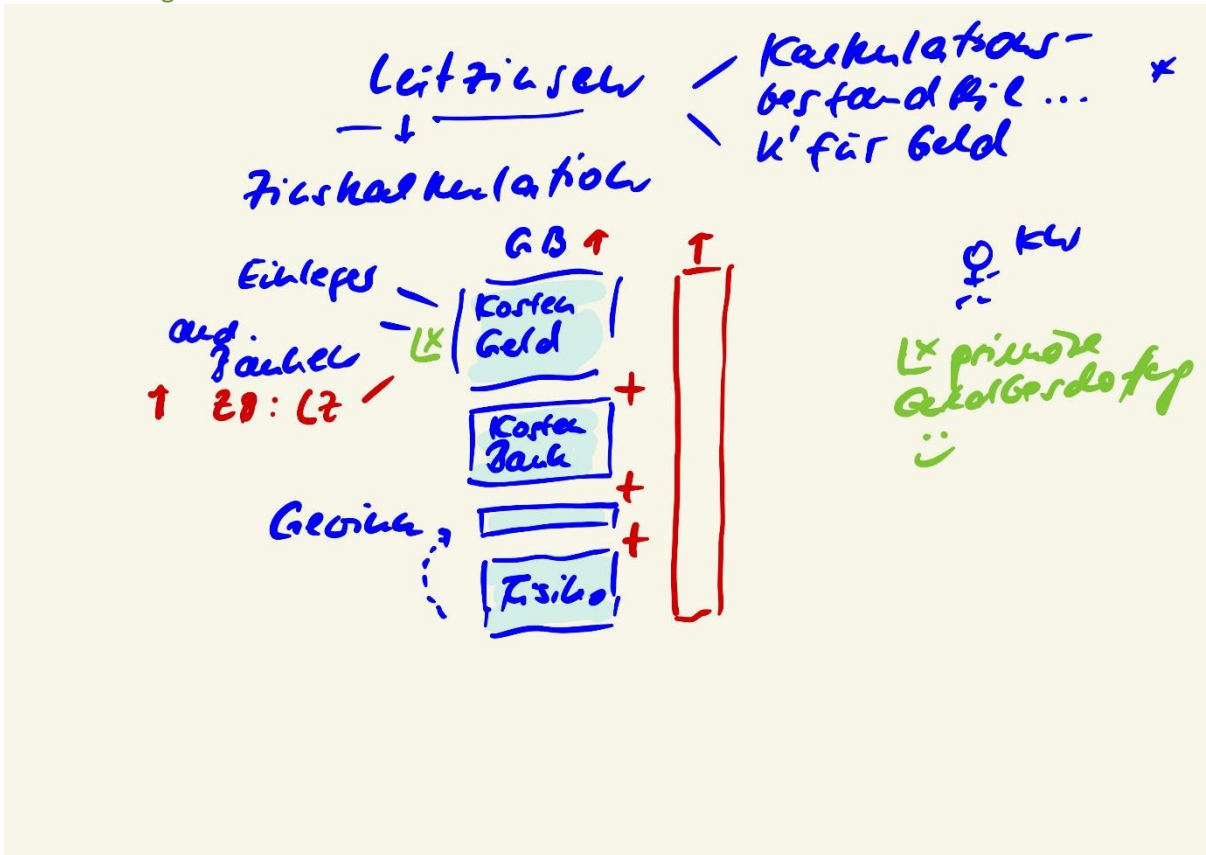 Leitzinsen
Kalkulations-
bestandteil ... *
K' für Geld
Zinskalkulation
GB ↑
↑
Einleger
and.
Banken
↑ ZB: LZ
L*
Kosten
Geld
+
Kosten
Bank
+
Gewinn
+
Risiko
KN
L* primäre
Geldbeschaffung